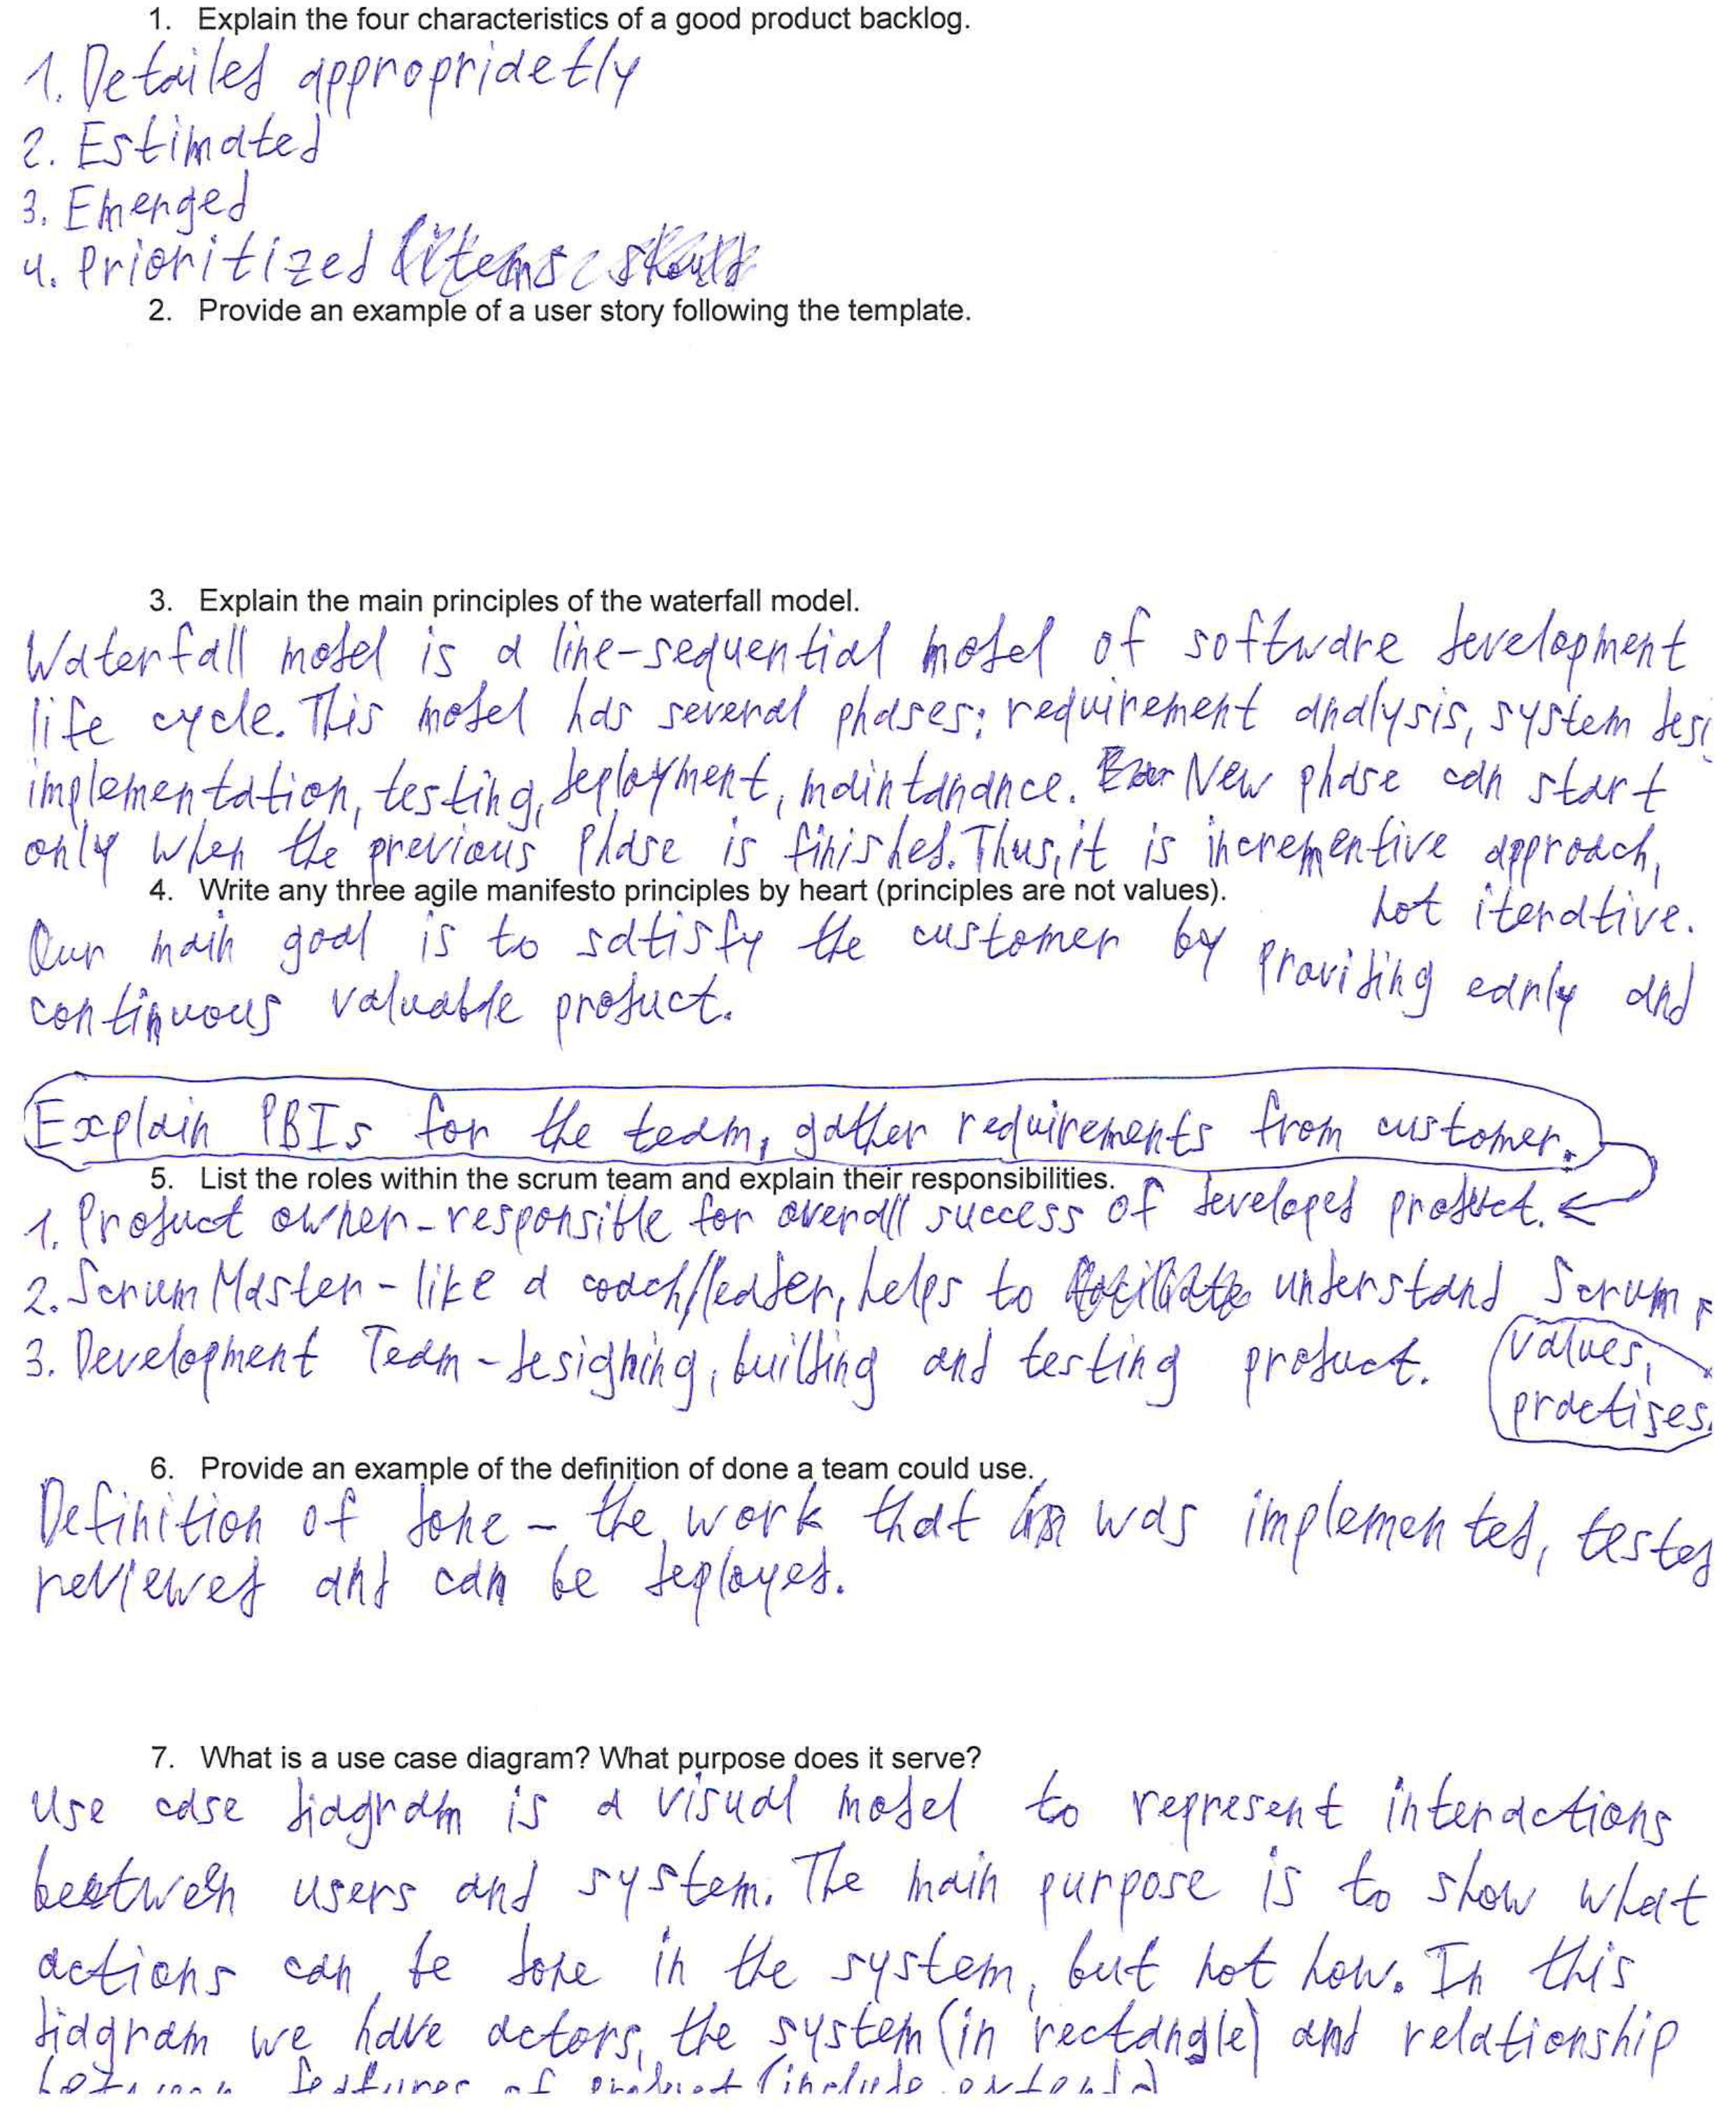 1. Explain the four characteristics of a good product backlog.
1. Detailed appropriately
2. Estimated
3. Emerged
4. Prioritized
2. Provide an example of a user story following the template.
3. Explain the main principles of the waterfall model.
Waterfall model is a line-sequential model of software development
life cycle. This model has several phases: requirement analysis, system desi
implementation, testing, deployment, maintanance. New phase can start
only when the previous phase is finished. Thus, it is incrementive approach,
not iterative.
4. Write any three agile manifesto principles by heart (principles are not values).
Our main goal is to satisfy the customer by providing early and
continuous valuable product.
Explain PBIs for the team, gather requirements from customer.
5. List the roles within the scrum team and explain their responsibilities.
1. Product owner - responsible for overall success of developed product.
2. Scrum Master - like a coach/leader, helps to understand Scrum
values,
practises.
3. Development Team - designing, building and testing product.
6. Provide an example of the definition of done a team could use.
Definition of done - the work that was implemented, tested
reviewed and can be deployed.
7. What is a use case diagram? What purpose does it serve?
Use case diagram is a visual model to represent interactions
between users and system. The main purpose is to show what
actions can be done in the system, but not how. In this
diagram we have actors, the system (in rectangle) and relationship
between features of product (include, extend)